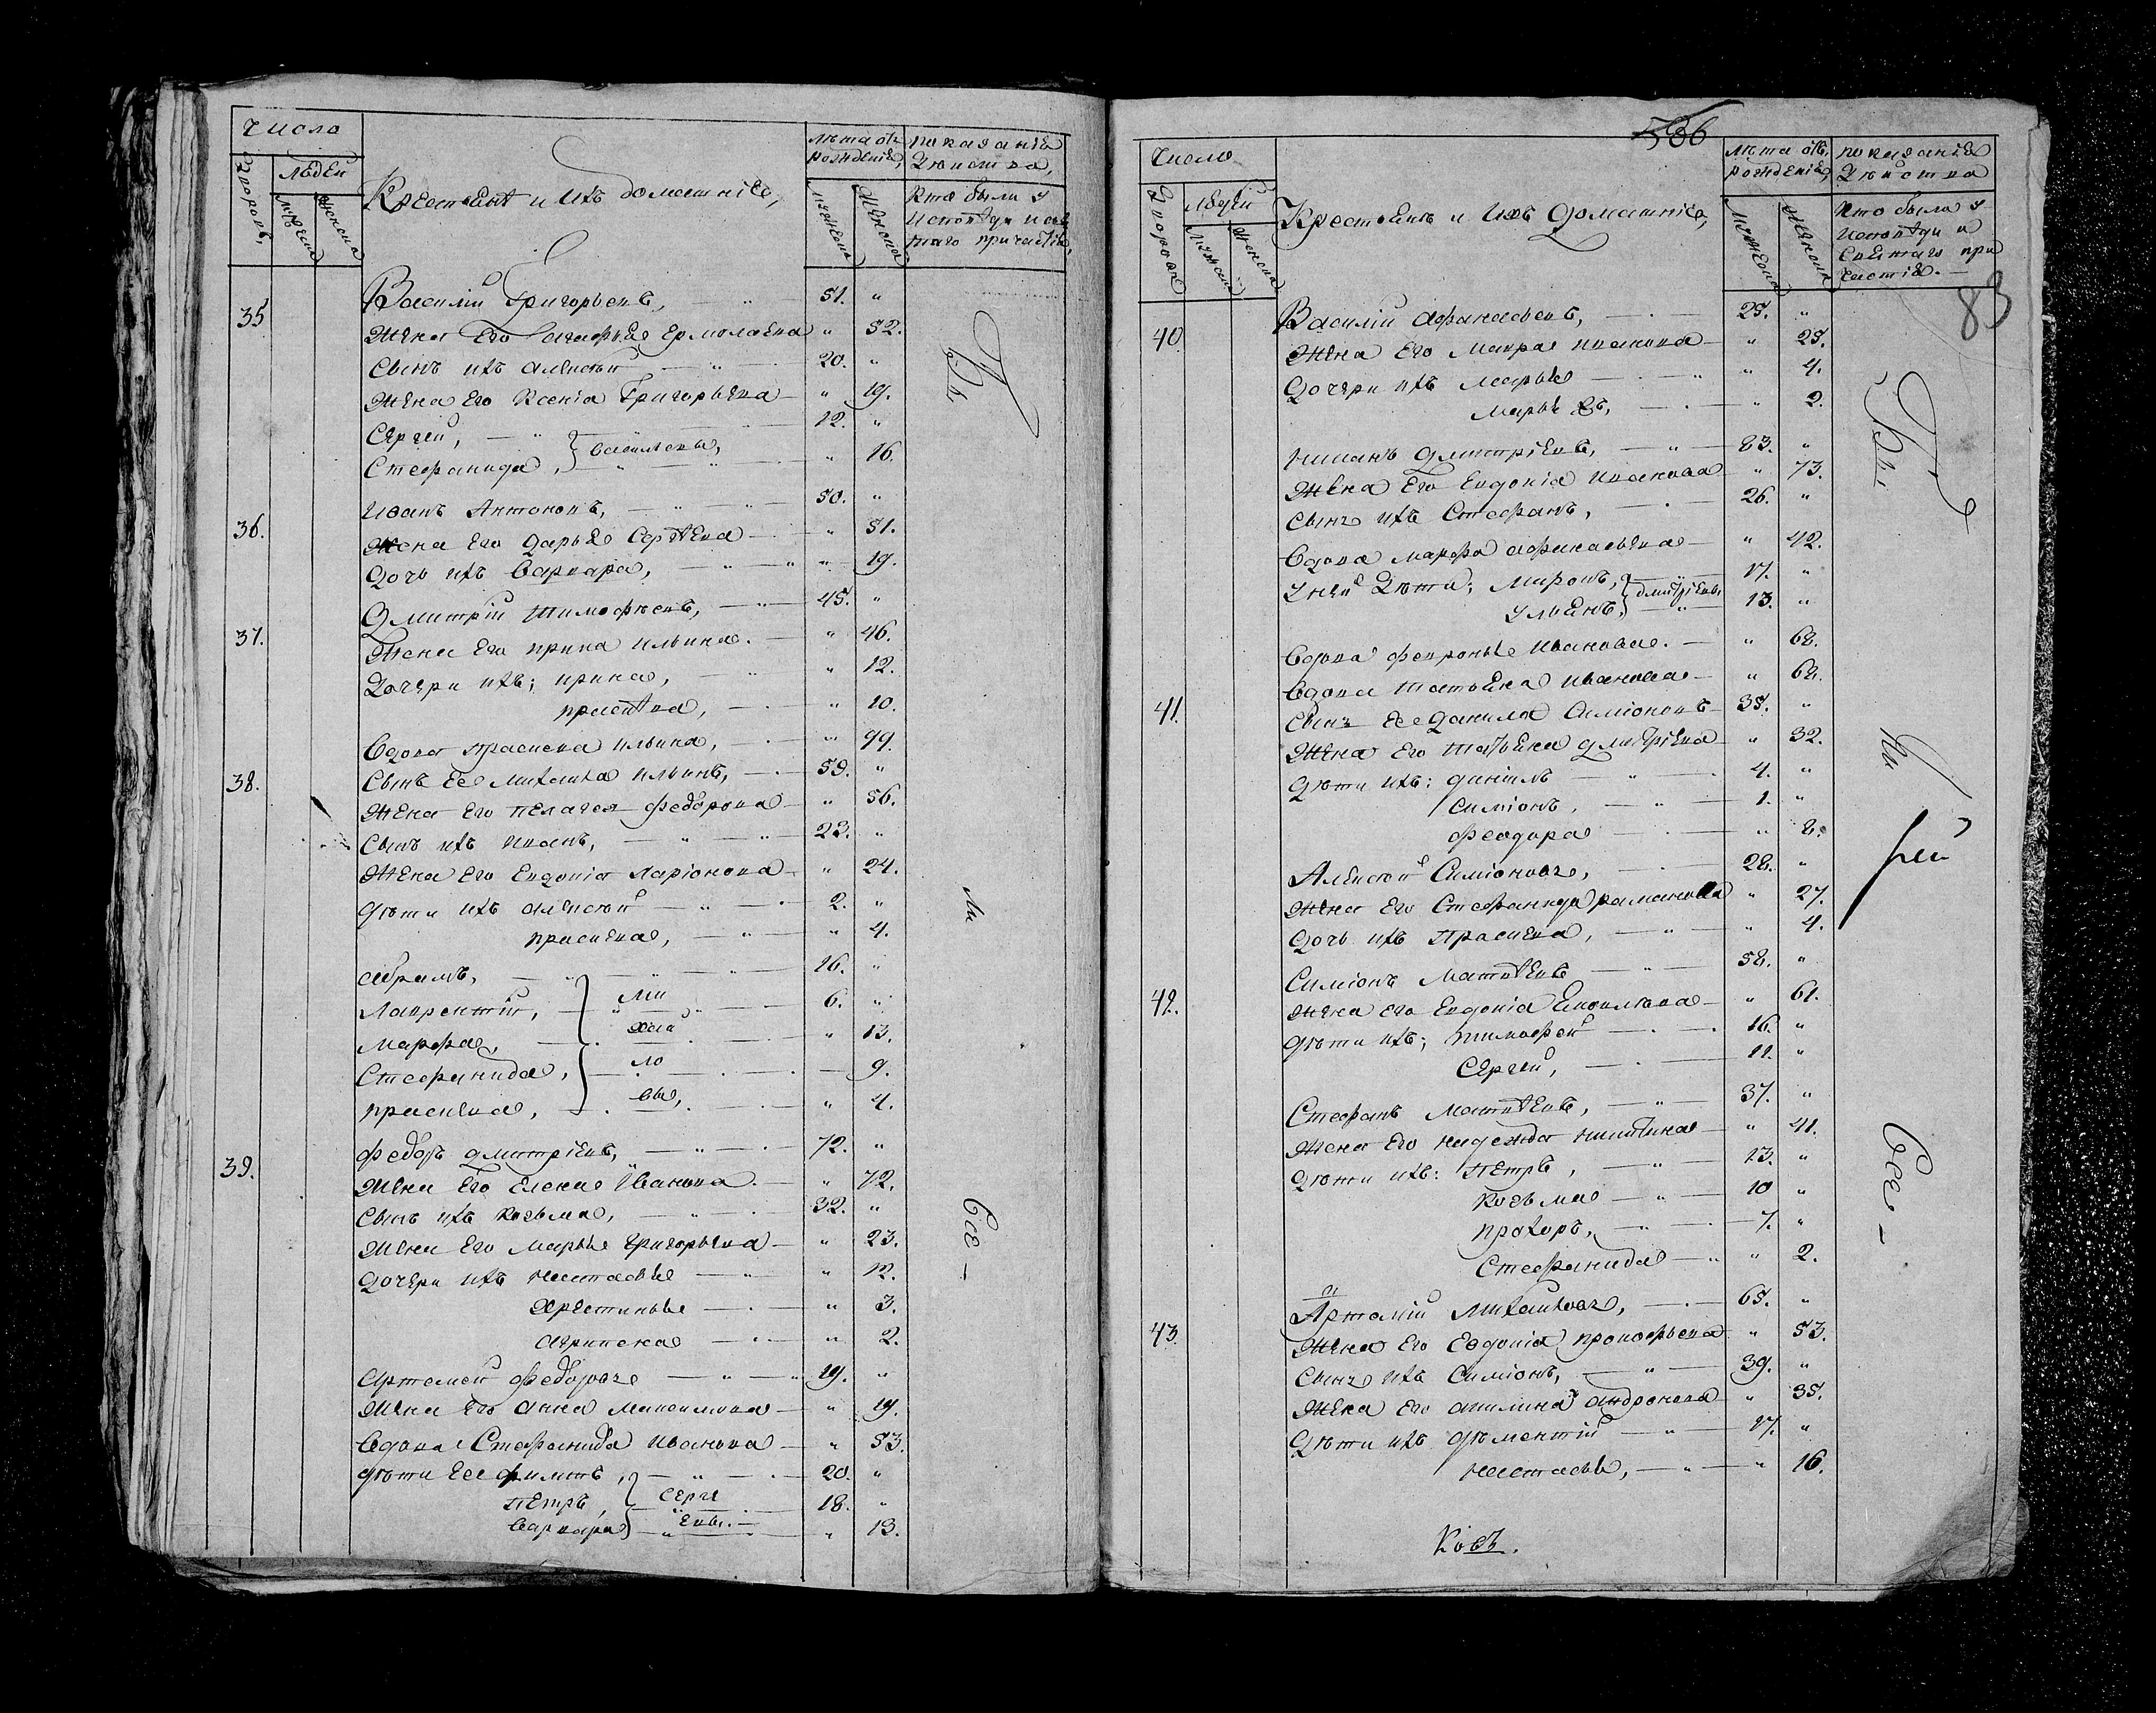 Число
Людей
Дворовъ,
Мужеска
Женска
Крестьянѣ и ихъ домашнiе,
Лѣта отъ рожденiя,
Мужеска
Женска
показанiе
Действа,
Кто были у
Исповѣди и свя
таго причастiя,
35 Василiй Григорьевъ, 51. "
Жена Его Агафья Ермолаева " 52.
Сынъ ихъ Алексѣй 20. "
Жена Его Ксенiа Григорьева " 19.
Сергей, 12. "
Стефанида, Васильевы, " 16.
36. Иванъ Антоновъ, 50. "
Жена Его Дарья Сергѣева " 51.
Дочь ихъ Варвара, " 19.
37. Дмитрiй Тимофеевъ, 45. "
Жена Его Ирина Ильина. " 46.
Дочери ихъ; Ирина, " 12.
" 10.
Вдова Праскева Ильина, " 99.
38. Сынъ Ее Михаила Ильинъ, 59. "
Жена Его Пелагея Федорова " 56.
Сынъ ихъ Иванъ, 23. "
Жена Его Евдокiа Ларiонова " 24.
Дѣти ихъ Алексѣй 2. "
Праскева, " 4.
Абрамъ, 16. "
Лаврентiй, Ми 6. "
Марфа, хаи " 13.
Стефанида, ло 9.
Праскева, вы, " 4.
39. Федоръ Дмитрiевъ, 72. "
Жена Его Елена Иванова. " 72.
Сынъ ихъ Козьма, 32. "
Жена Его Марья Григорьева " 23.
Дочери ихъ Настасья " 12.
Христинья " 3.
" 2.
Артемей Федоровъ 19. "
Жена Его Анна Максимова " 19.
Вдова Стефанида Иванова " 53.
Дѣти Ее Филипъ, 20. "
Петръ, Серге 18. "
Варвара евы. " 13.
Бы
ли
Все
586
83
Число
Людей
Дворовъ
Мужеска
Женска
Крестьянъ и ихъ Домашнiе,
Лѣта отъ рожденiя,
Мужеска
Женска
показанiя
Действа
Кто были у
Исповѣди и
Святаго при
частiя.
40. Василiй Афанасьевъ, 25. "
Жена Его Мавра Иванова " 25.
Дочери ихъ Марья " 4.
Марья " 2.
Дмитрiевъ, 83. "
Жена Его Евдокiа Иванова " 73.
Сынъ ихъ Стефанъ, 26. "
Вдова Марфа Афанасьева " 42.
У нея Дѣти; Миронъ, 17. "
Ульянъ, Дмитрiевы 13. "
Вдова Февронья Иванова. " 68.
41. Вдова Татьяна Иванова " 68.
Сынъ Ее Данила Симiоновъ 35. "
Жена Его Татьяна Дмитрiева " 32.
Дѣти ихъ: 4. "
Симiонъ, 1. "
Феодора " 8.
Алексѣй Симiоновъ, 28. "
Жена Его Стефанида Романова " 27.
Дочь ихъ Праскева, " 4.
42. Симiонъ Матвѣевъ 58. "
Жена Его Евдокiа " 61.
Дѣти ихъ; Тимофей 16. "
Сергей, 11. "
Стефанъ Матвѣевъ, 37. "
Жена Его Надежда Никитина " 41.
Дѣти ихъ: Петръ, 13. "
Козьма 10 "
Прохоръ, 7. "
Стефанида " 2.
43. Артамiй Михайловъ, 65. "
Жена Его Евдокiа Прокофьева " 53.
Сынъ ихъ Симiонъ, 39. "
Жена Его Акилина Андронова " 35.
Дѣти ихъ Дементiй 17. "
Настасья, " 16.
Бы
ли
Все
рей